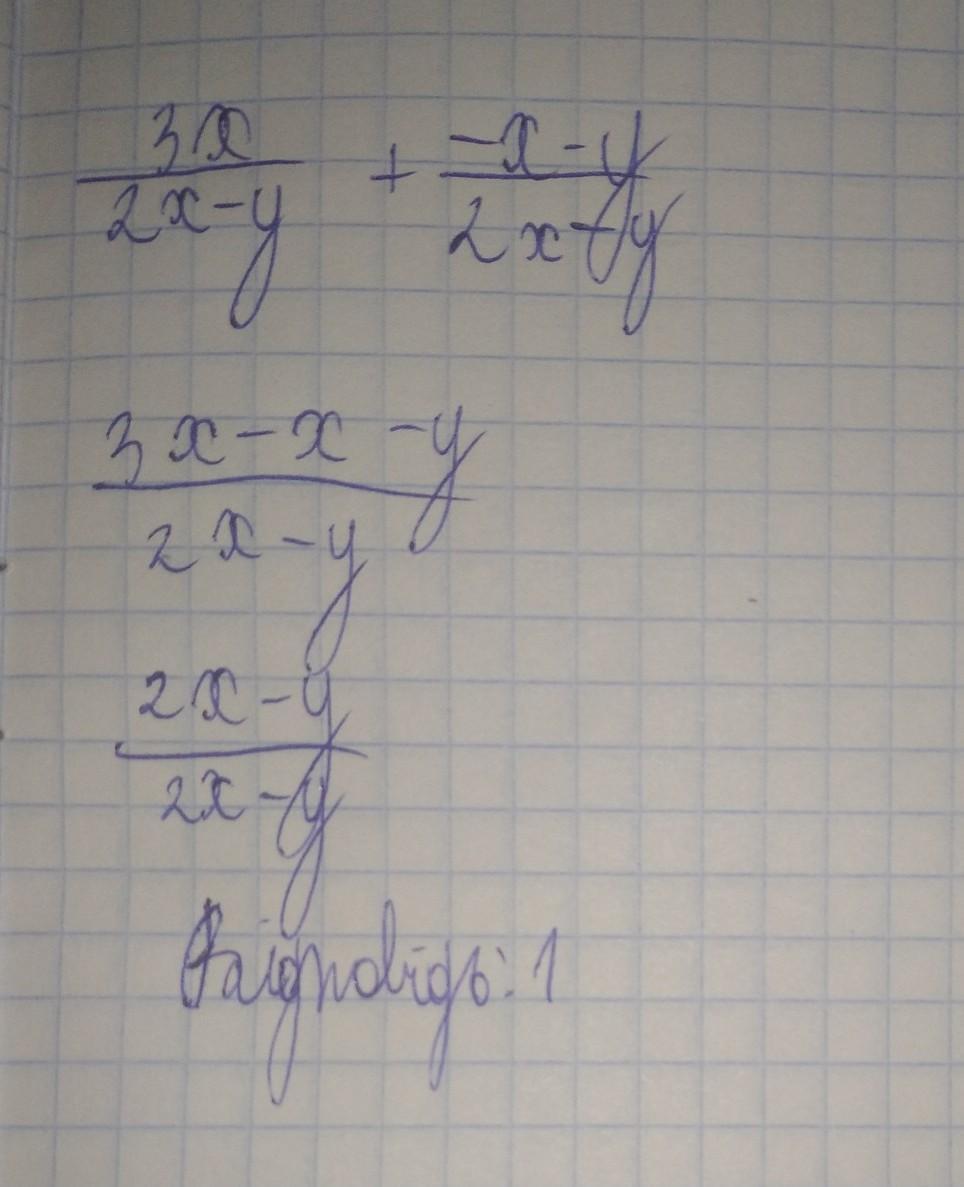 3x + -x-y
2x-y 2x-y
3x-x-y
2x-y
2x-y
2x-y
Відповідь: 1